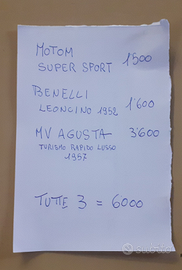 MOTOM 1500
SUPER SPORT
BENELLI
LEONCINO 1952 1600
MV AGUSTA 3600
TURISMO RAPIDO LUSSO
1957
TUTTE 3 = 6000
subito